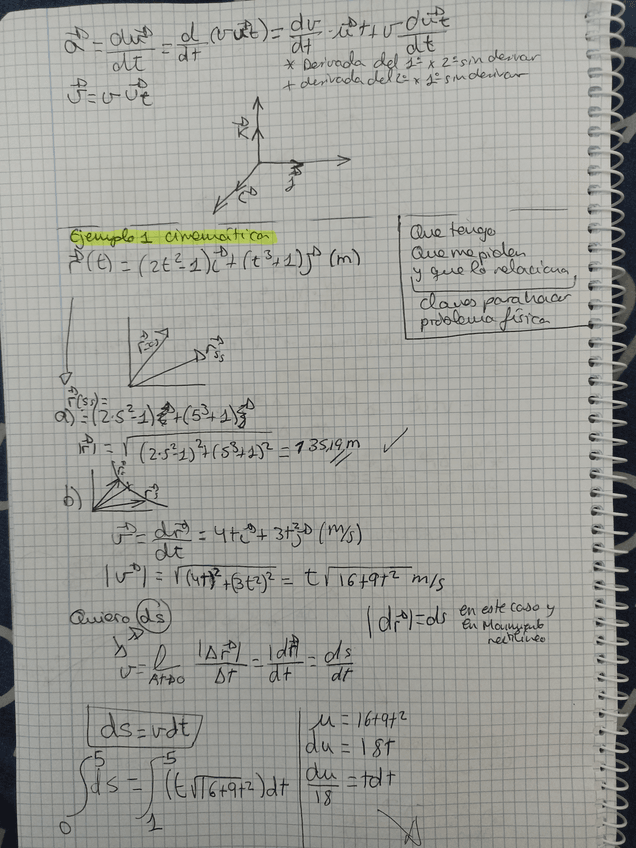 a⃗ = du⃗/dt = d/dt (v u⃗t) = dv/dt · u⃗t + v du⃗t/dt
* Derivada del 1º x 2º sin derivar
+ derivada del 2º x 1º sin derivar
v⃗ = v u⃗t
k⃗
j⃗
i⃗
Ejemplo 1 cinemática
r⃗(t) = (2t²-1)i⃗ + (t³+1)j⃗ (m)
Que tengo
Que me piden
y que lo relaciona
claves para hacer
problema física
r⃗5s
r⃗(5s) =
a) = (2·5²-1)i⃗ + (5³+1)j⃗
|r⃗| = √(2·5²-1)²+(5³+1)² = 135,19 m
b)
v⃗ = dr⃗/dt = 4t i⃗ + 3t² j⃗ (m/s)
|v⃗| = √(4t)²+(3t²)² = t√16+9t² m/s
Quiero ds
|dr⃗| = ds en este caso y
en Movimiento
rectilíneo
v = l Δt→0 |Δr⃗|/Δt = |dr⃗|/dt = ds/dt
ds = v dt
∫₀⁵ ds = ∫₁⁵ (t√16+9t²)dt
u = 16+9t²
du = 18t
du/18 = t dt